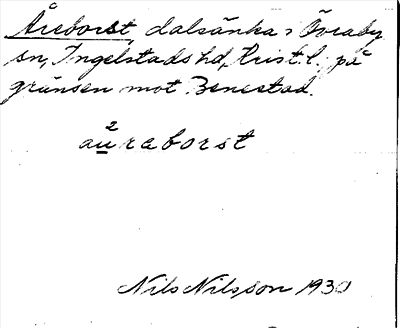 Åreborst, dalsänka i Övraby
sn, Ingelstads hd, Krist. l. på
gränsen mot Benestad.
2
aṳraborst
Nils Nilsson 1930